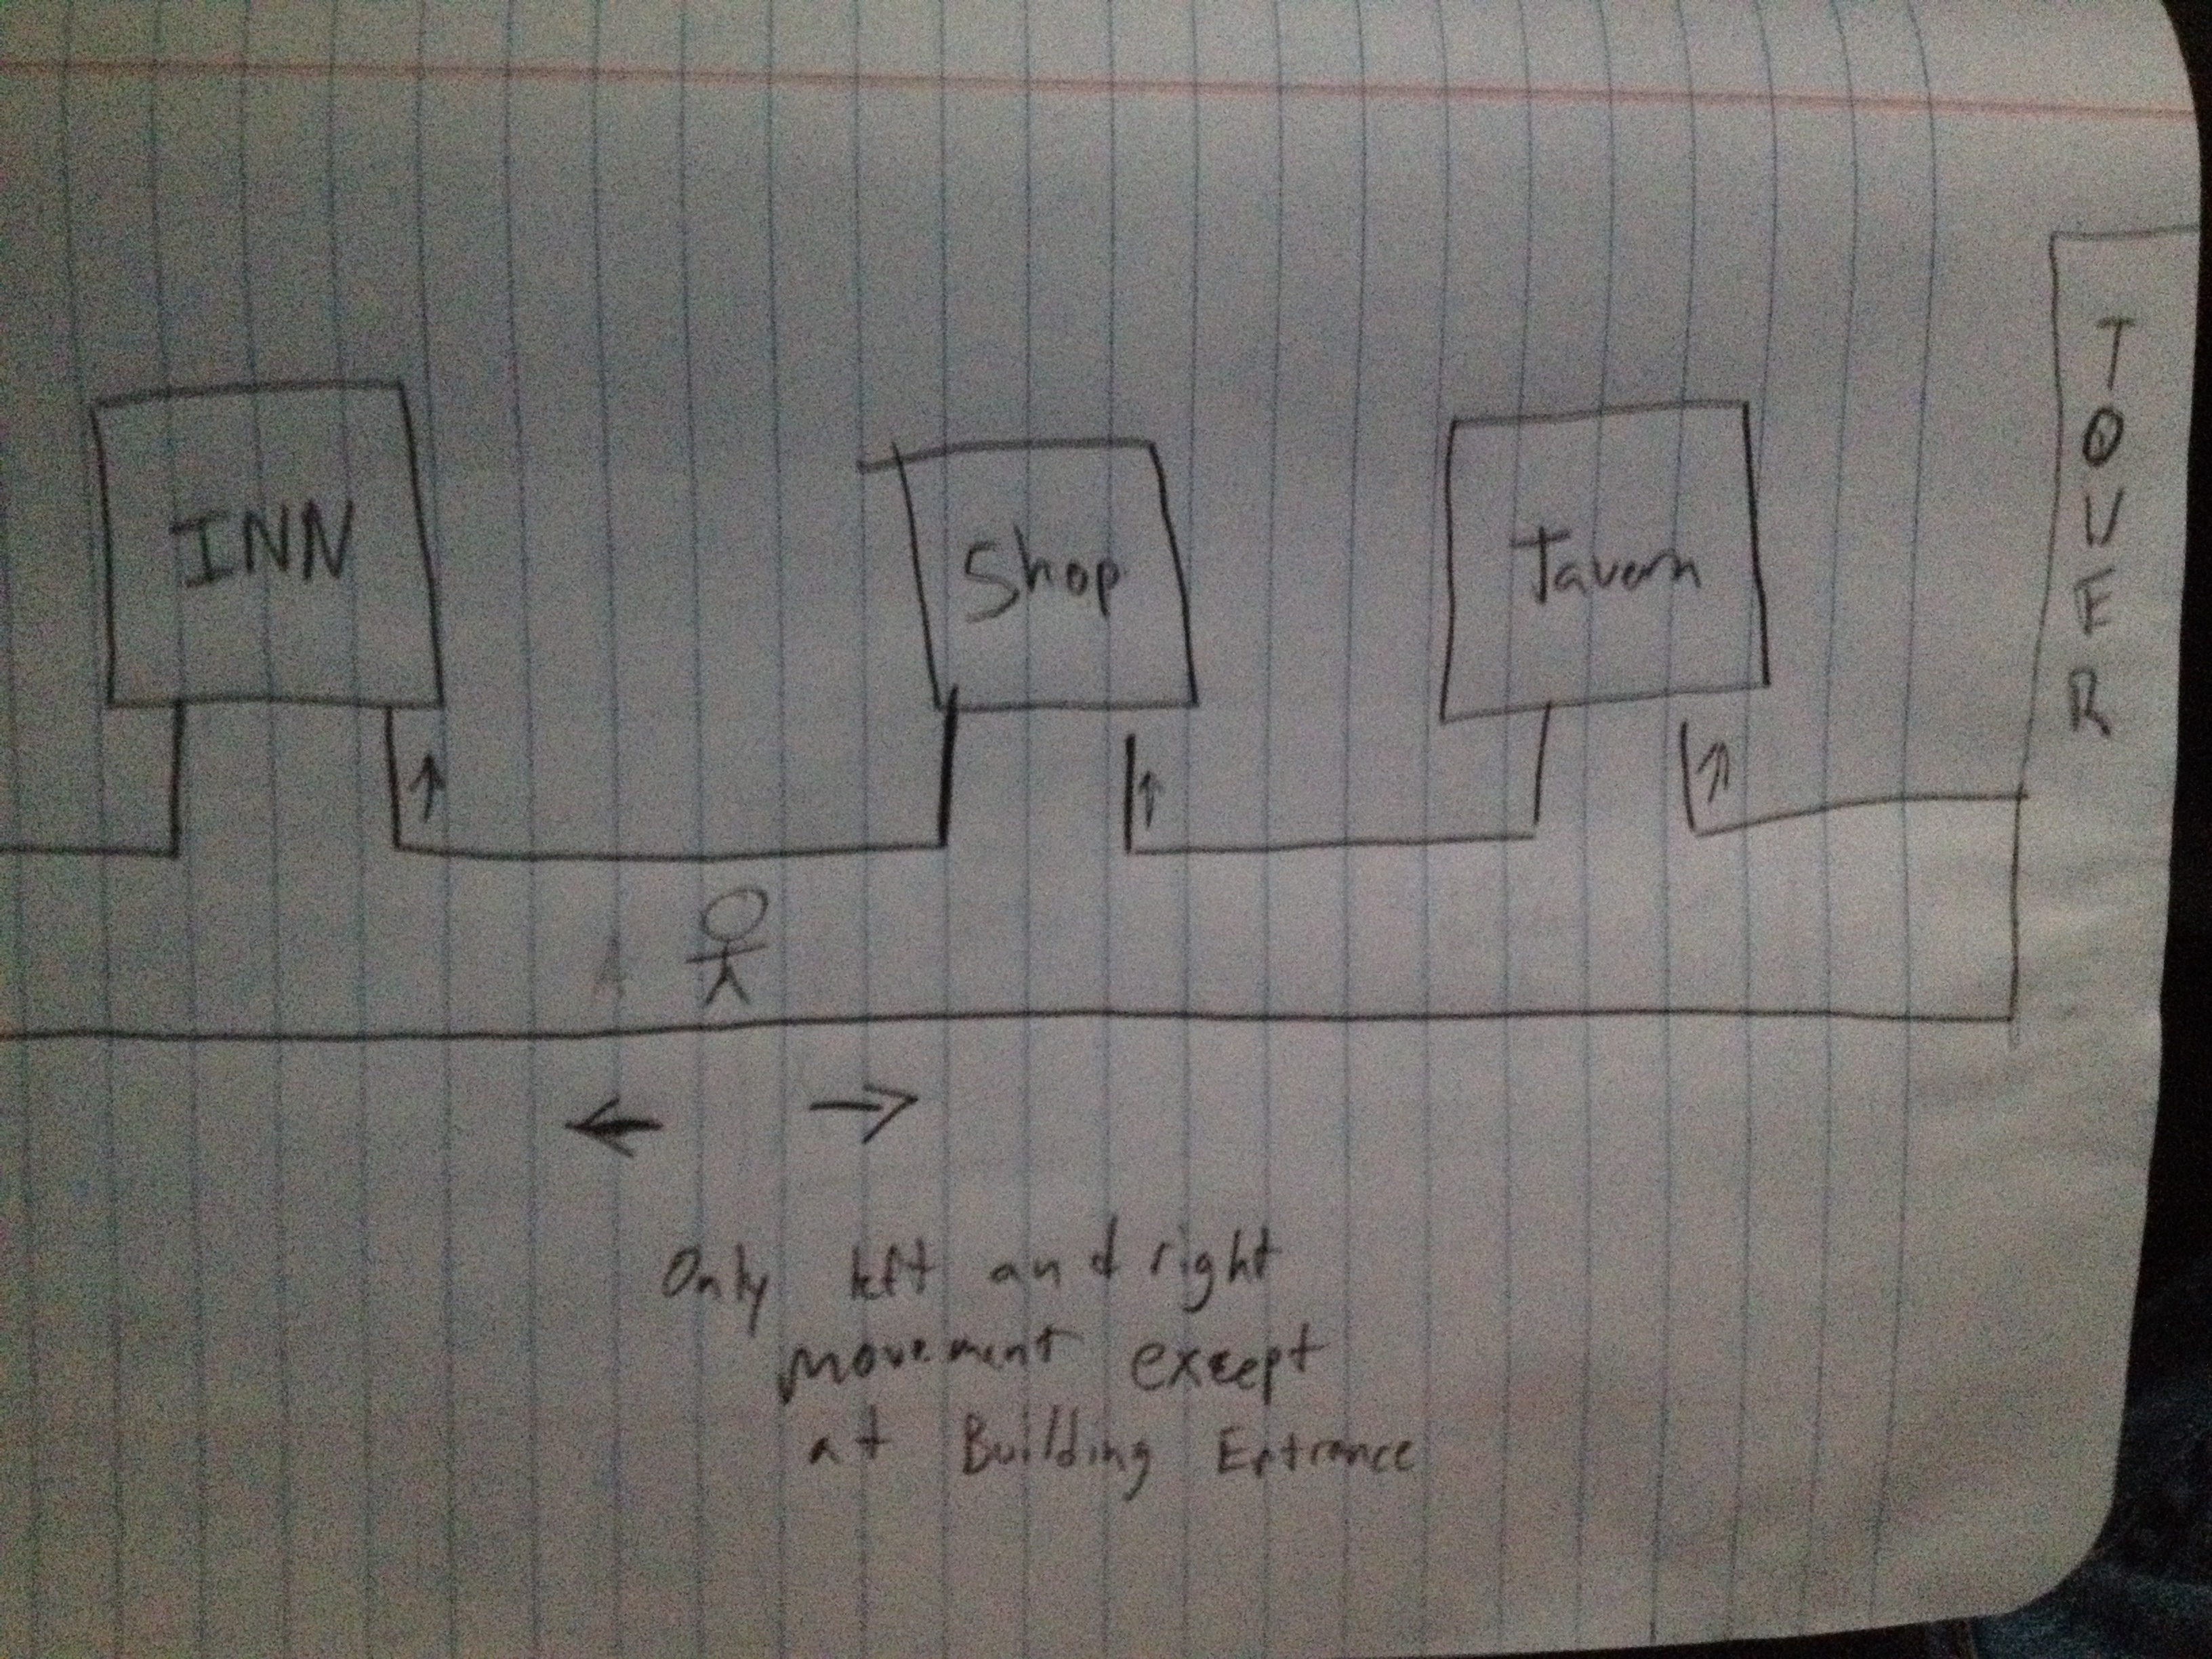 INN
Shop
Tavern
TOWER
Only left and right
movement except
at Building Entrance